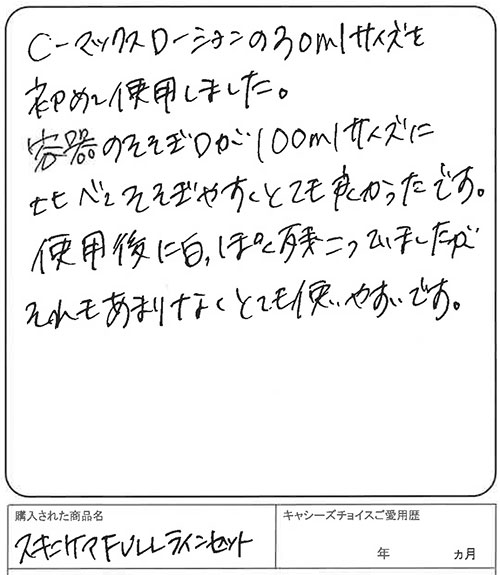 C-マックスローションの30mlサイズを
初めて使用しました。
容器のそそぎ口が100mlサイズに
比べてそそぎやすくとても良かったです。
使用後に白っぽく残こっていましたが
それもあまりなくとても使いやすいです。
購入された商品名
キャシーズチョイスご愛用歴
スキンケアFULLラインセット
年 ヵ月